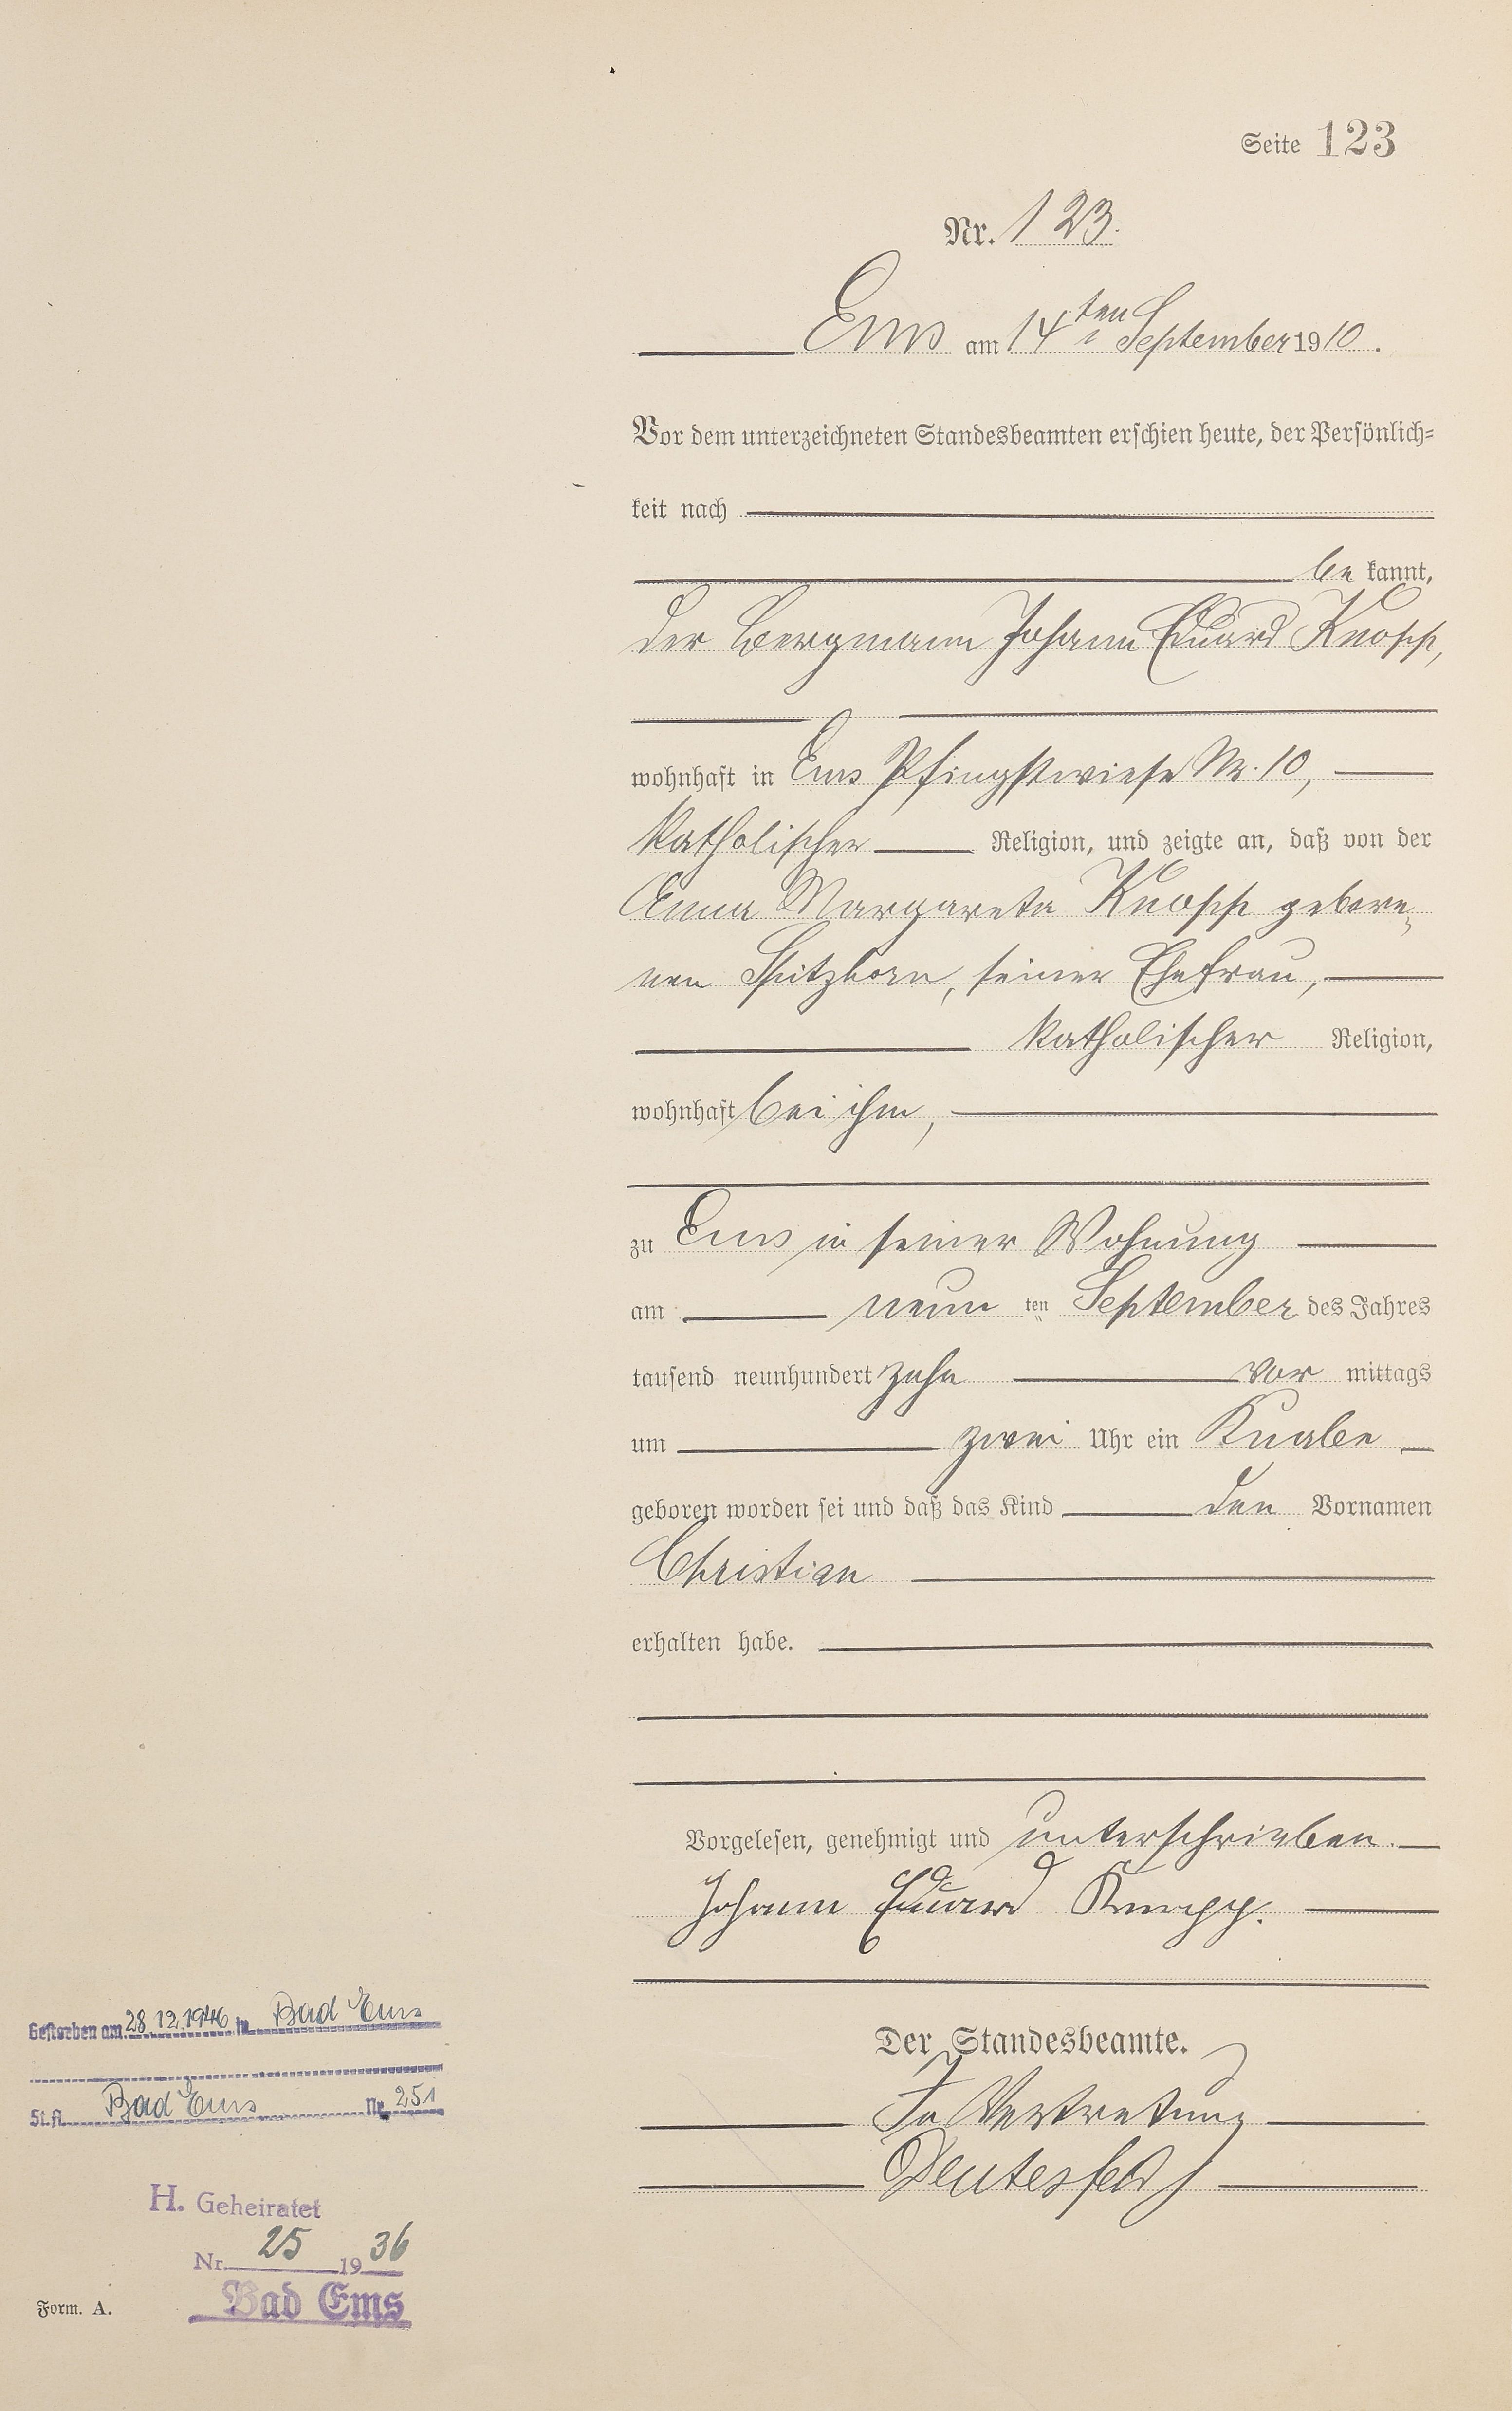 Seite 123
Nr. 123.
Ems am 14ten September 1910.
Vor dem unterzeichneten Standesbeamten erschien heute, der Persönlich=
keit nach
be kannt,
der Bergmann Johann Eduard Knopp,
wohnhaft in Ems Pfingstwiese Nr. 10,
katholischer Religion, und zeigte an, daß von der
Anna Margareta Knopp gebore-
nen Spitzhorn, seiner Ehefrau,
katholischer Religion,
wohnhaft bei ihm,
zu Ems in seiner Wohnung
am neun ten September des Jahres
tausend neunhundert zehn vor mittags
um zwei Uhr ein Knabe
geboren worden sei und daß das Kind den Vornamen
Christian
erhalten habe.
Vorgelesen, genehmigt und unterschrieben.
Johann Eduard Knopp.
Der Standesbeamte.
In Vertretung
Gestorben am 28.12.1946 in Bad Ems
St.A. Bad Ems Nr. 251
H. Geheiratet
Nr. 25 1936
Bad Ems
Form. A.